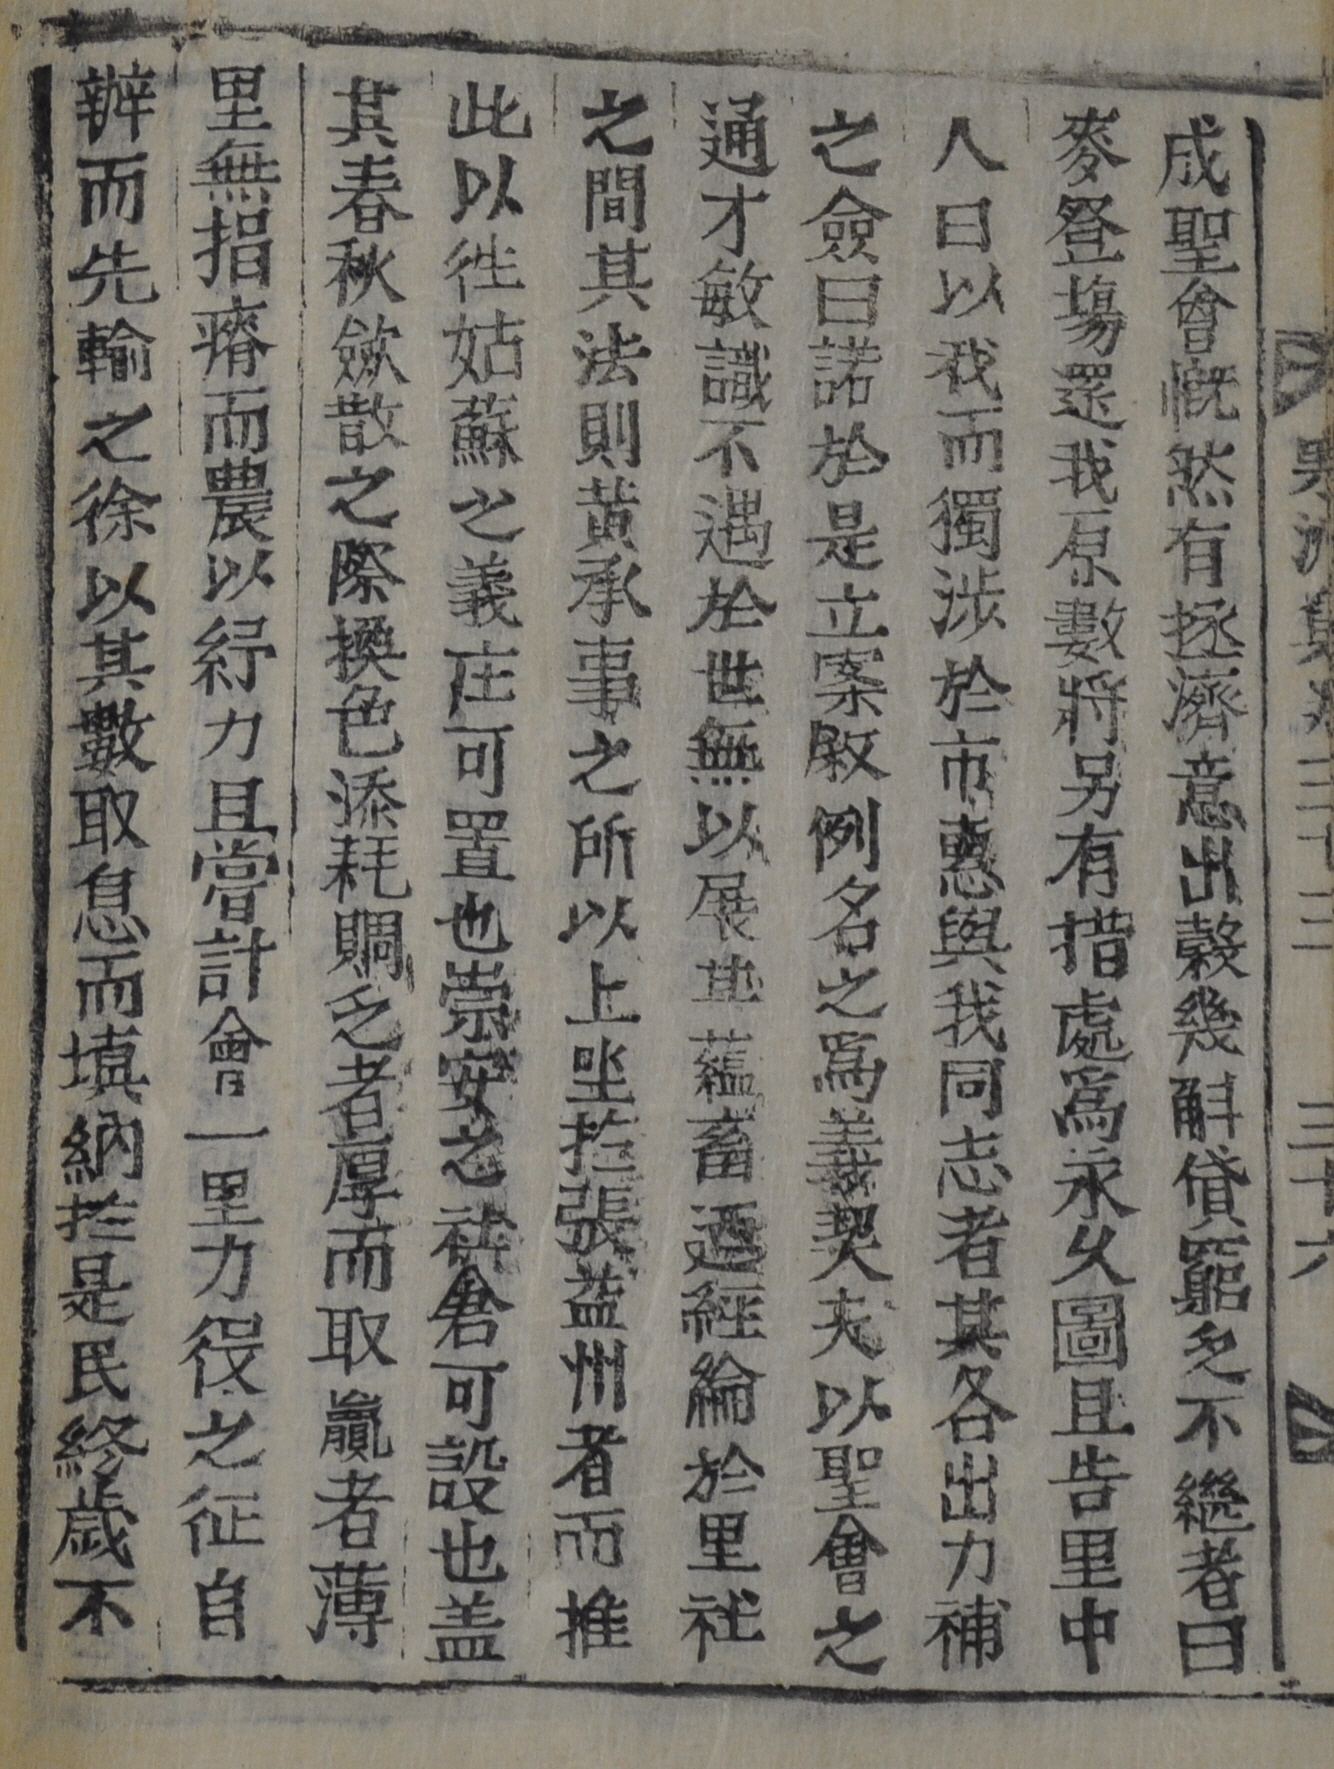 成聖會慨然有拯濟意出穀幾斛貸窮乏不繼者曰
麥登場還我原數將另有措處爲永久圖且告里中
人曰以我而獨涉於市惠與我同志者其各出力補
之僉曰諾於是立案敗例名之爲義契夫以聖會之
通才敏識不遇於世無以展其蘊畜迺經綸於里社
之間其法則黃承事之所以上坐於張益州者而推
此以徃姑蘇之義庄可置也崇安之社倉可設也盖
其春秋斂散之際換色添耗賙乏者厚而取贏者薄
里無捐瘠而農以紓力且嘗計會一里力役之征自
辦而先輸之徐以其數取息而塡納於是民終歲不
三十六